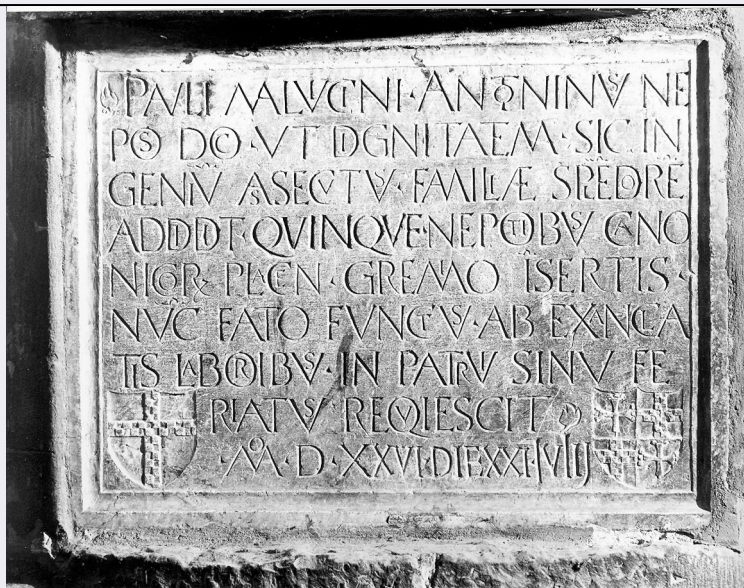 PAVLI MALVCINI · ANTONINVS NE
POS DOC · VT DIGNITATEM · SIC IN
GENIV ASSECVTVS · FAMILIÆ SPLEDORE
ADDIDIT · QVINQVE · NEPOTIBVS CANO
NICOR PLACEN · GREMIO ISERTIS ·
NVC FATO FVNCTVS · AB EXANCLA
TIS LABORIBVS · IN PATRV SINV FE
RIATVS REQVIESCIT
· M · D · XXVI · DIE XXI · IVLIJ